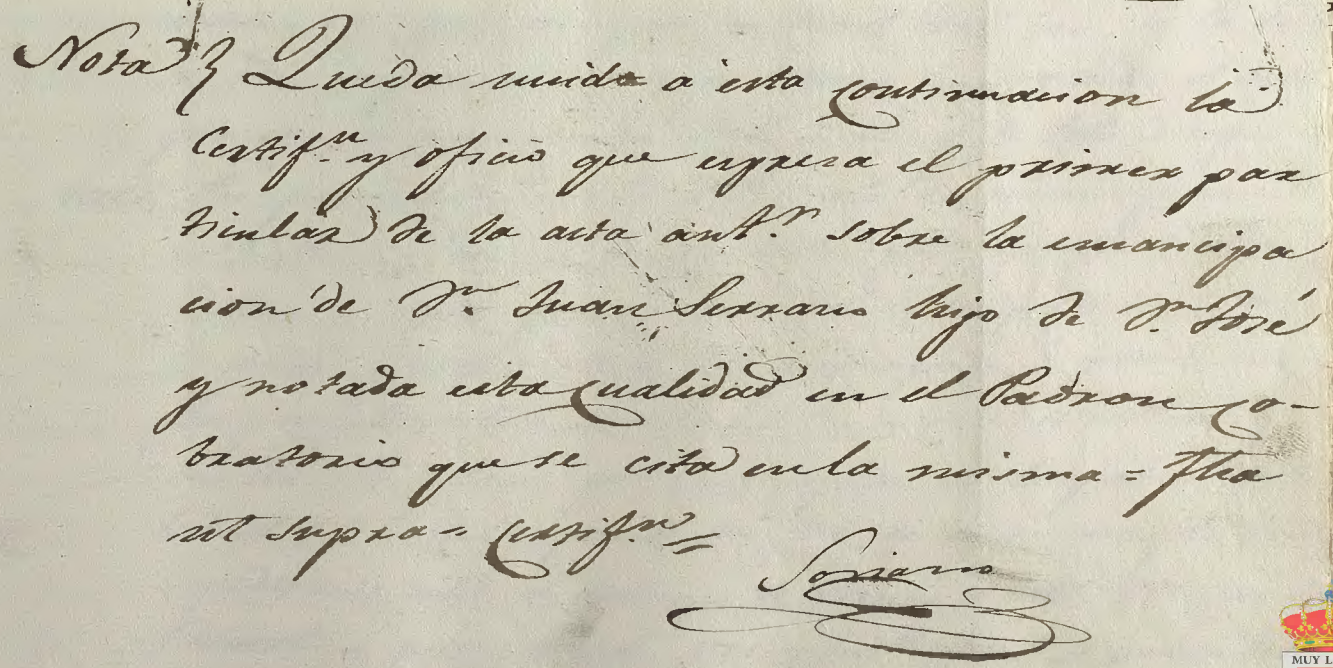 Nota } Queda unida a esta continuacion la
Certif.n y oficio que expresa el primer par
ticular de la acta ant.r sobre la emancipa
cion de D.n Juan Serrano hijo de D.n José
y notada esta cualidad en el Padron co-
bratorio que se cita en la misma = Fha
ut supra = Certif.n =
Soriano
MUY L